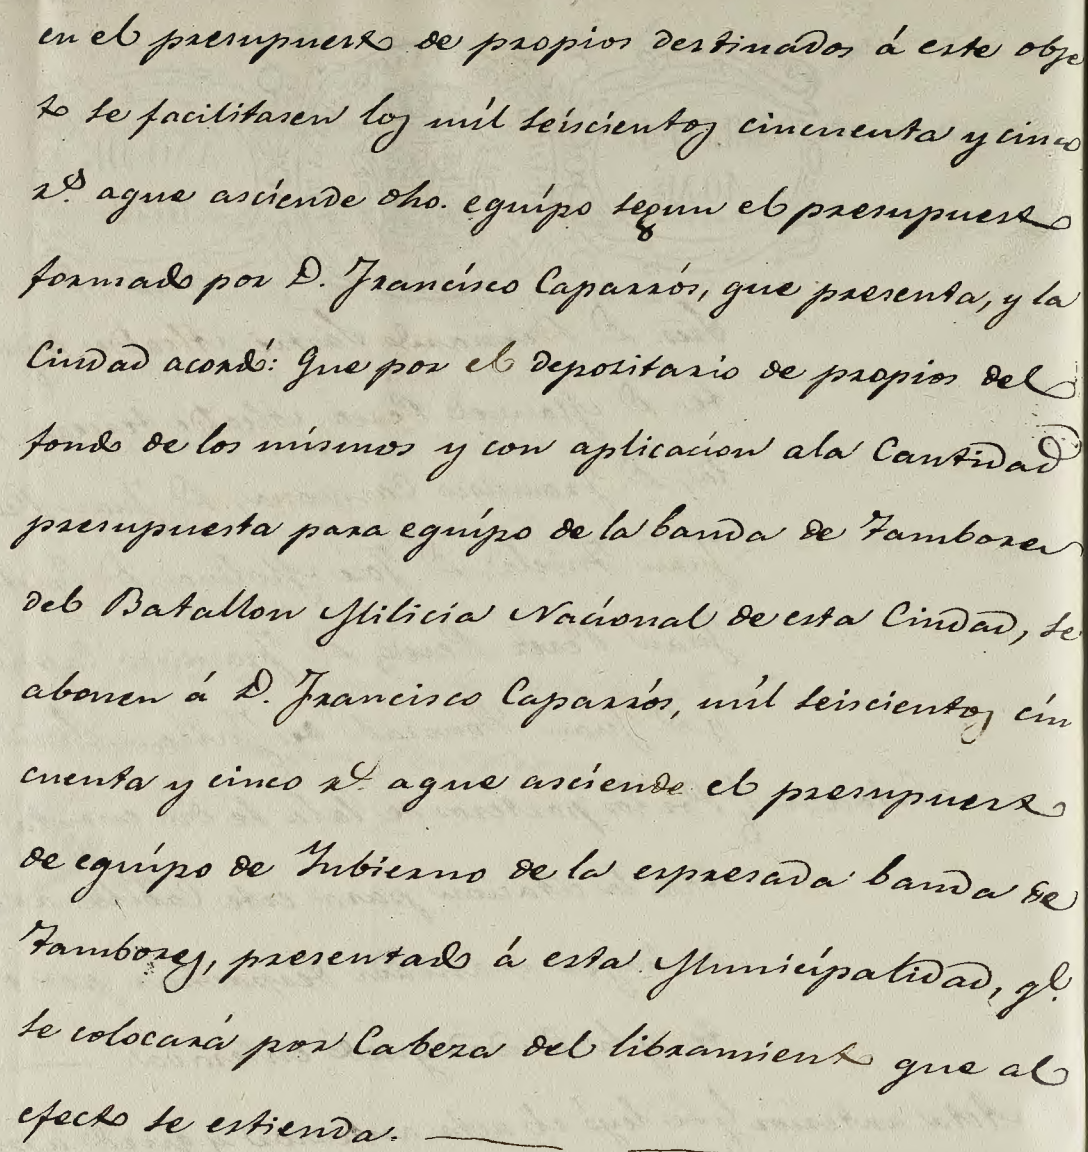 en el presupuesto de propios destinados á este obje
to se facilitasen los mil seiscientos cincuenta y cinco
rs. aque asciende dho. equipo segun el presupuesto
formado por D. Francisco Caparrós, que presenta, y la
Ciudad acordó: Que por el depositario de propios del
fondo de los mismos y con aplicacion ala Cantidad
presupuesta para equipo de la banda de Tambores
del Batallon Milicia Nacional de esta Ciudad, se
abonen á D. Francisco Caparrós, mil seiscientos cin
cuenta y cinco rs. aque asciende el presupuesto
de equipo de Inbierno de la espresada banda de
Tambores, presentado á esta Municipalidad, ql.
se colocará por Cabeza del libramiento que al
efecto se estienda.